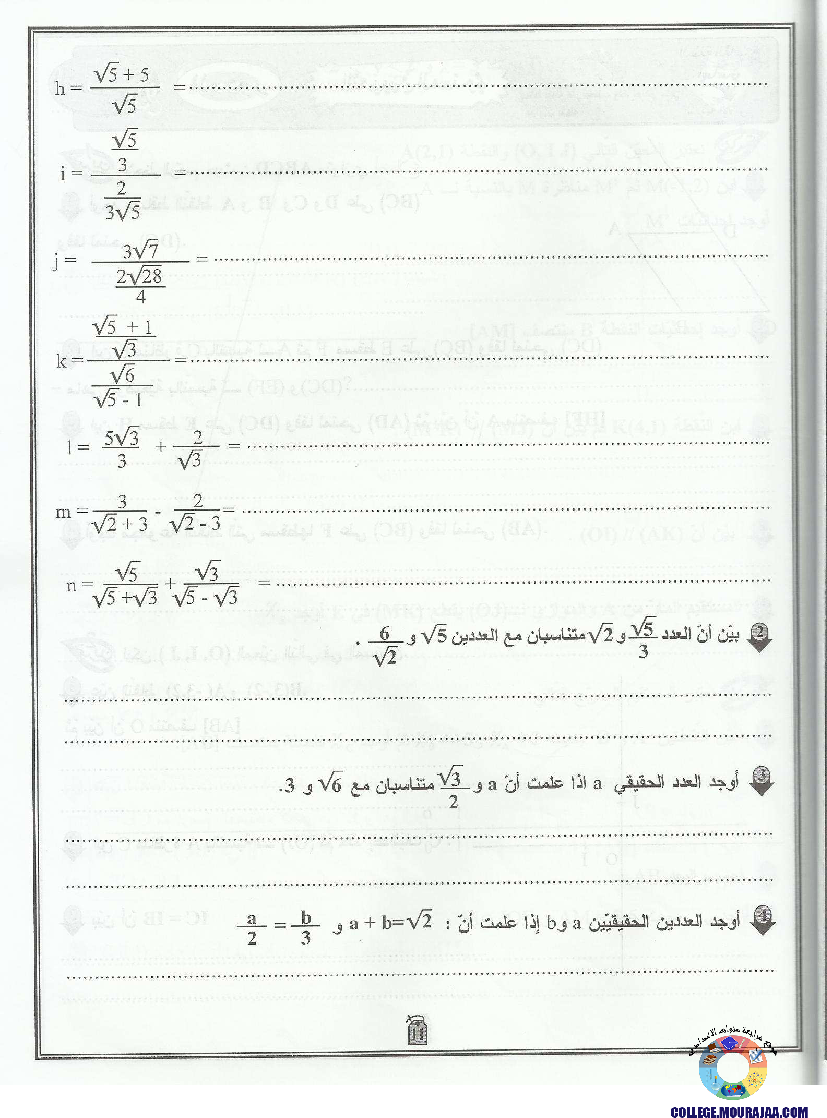 h = (√5 + 5) / √5 = ........
i = (√5 / 3) / (2 / 3√5) = ........
j = 3√7 / (2√28 / 4) = ........
k = ((√5 + 1) / √3) / (√6 / (√5 - 1)) = ........
l = 5√3 / 3 + 2 / √3 = ........
m = 3 / (√2 + 3) - 2 / (√2 - 3) = ........
n = √5 / (√5 + √3) + √3 / (√5 - √3) = ........
2 بيّن أنّ العدد √5 / 3 و √2 متناسبان مع العددين √5 و 6 / √2 .
3 أوجد العدد الحقيقي a اذا علمت أنّ a و √3 / 2 متناسبان مع √6 و 3.
4 أوجد العددين الحقيقيّين a و b إذا علمت أنّ : a + b = √2 و a / 2 = b / 3
11
COLLEGE.MOURAJAA.COM